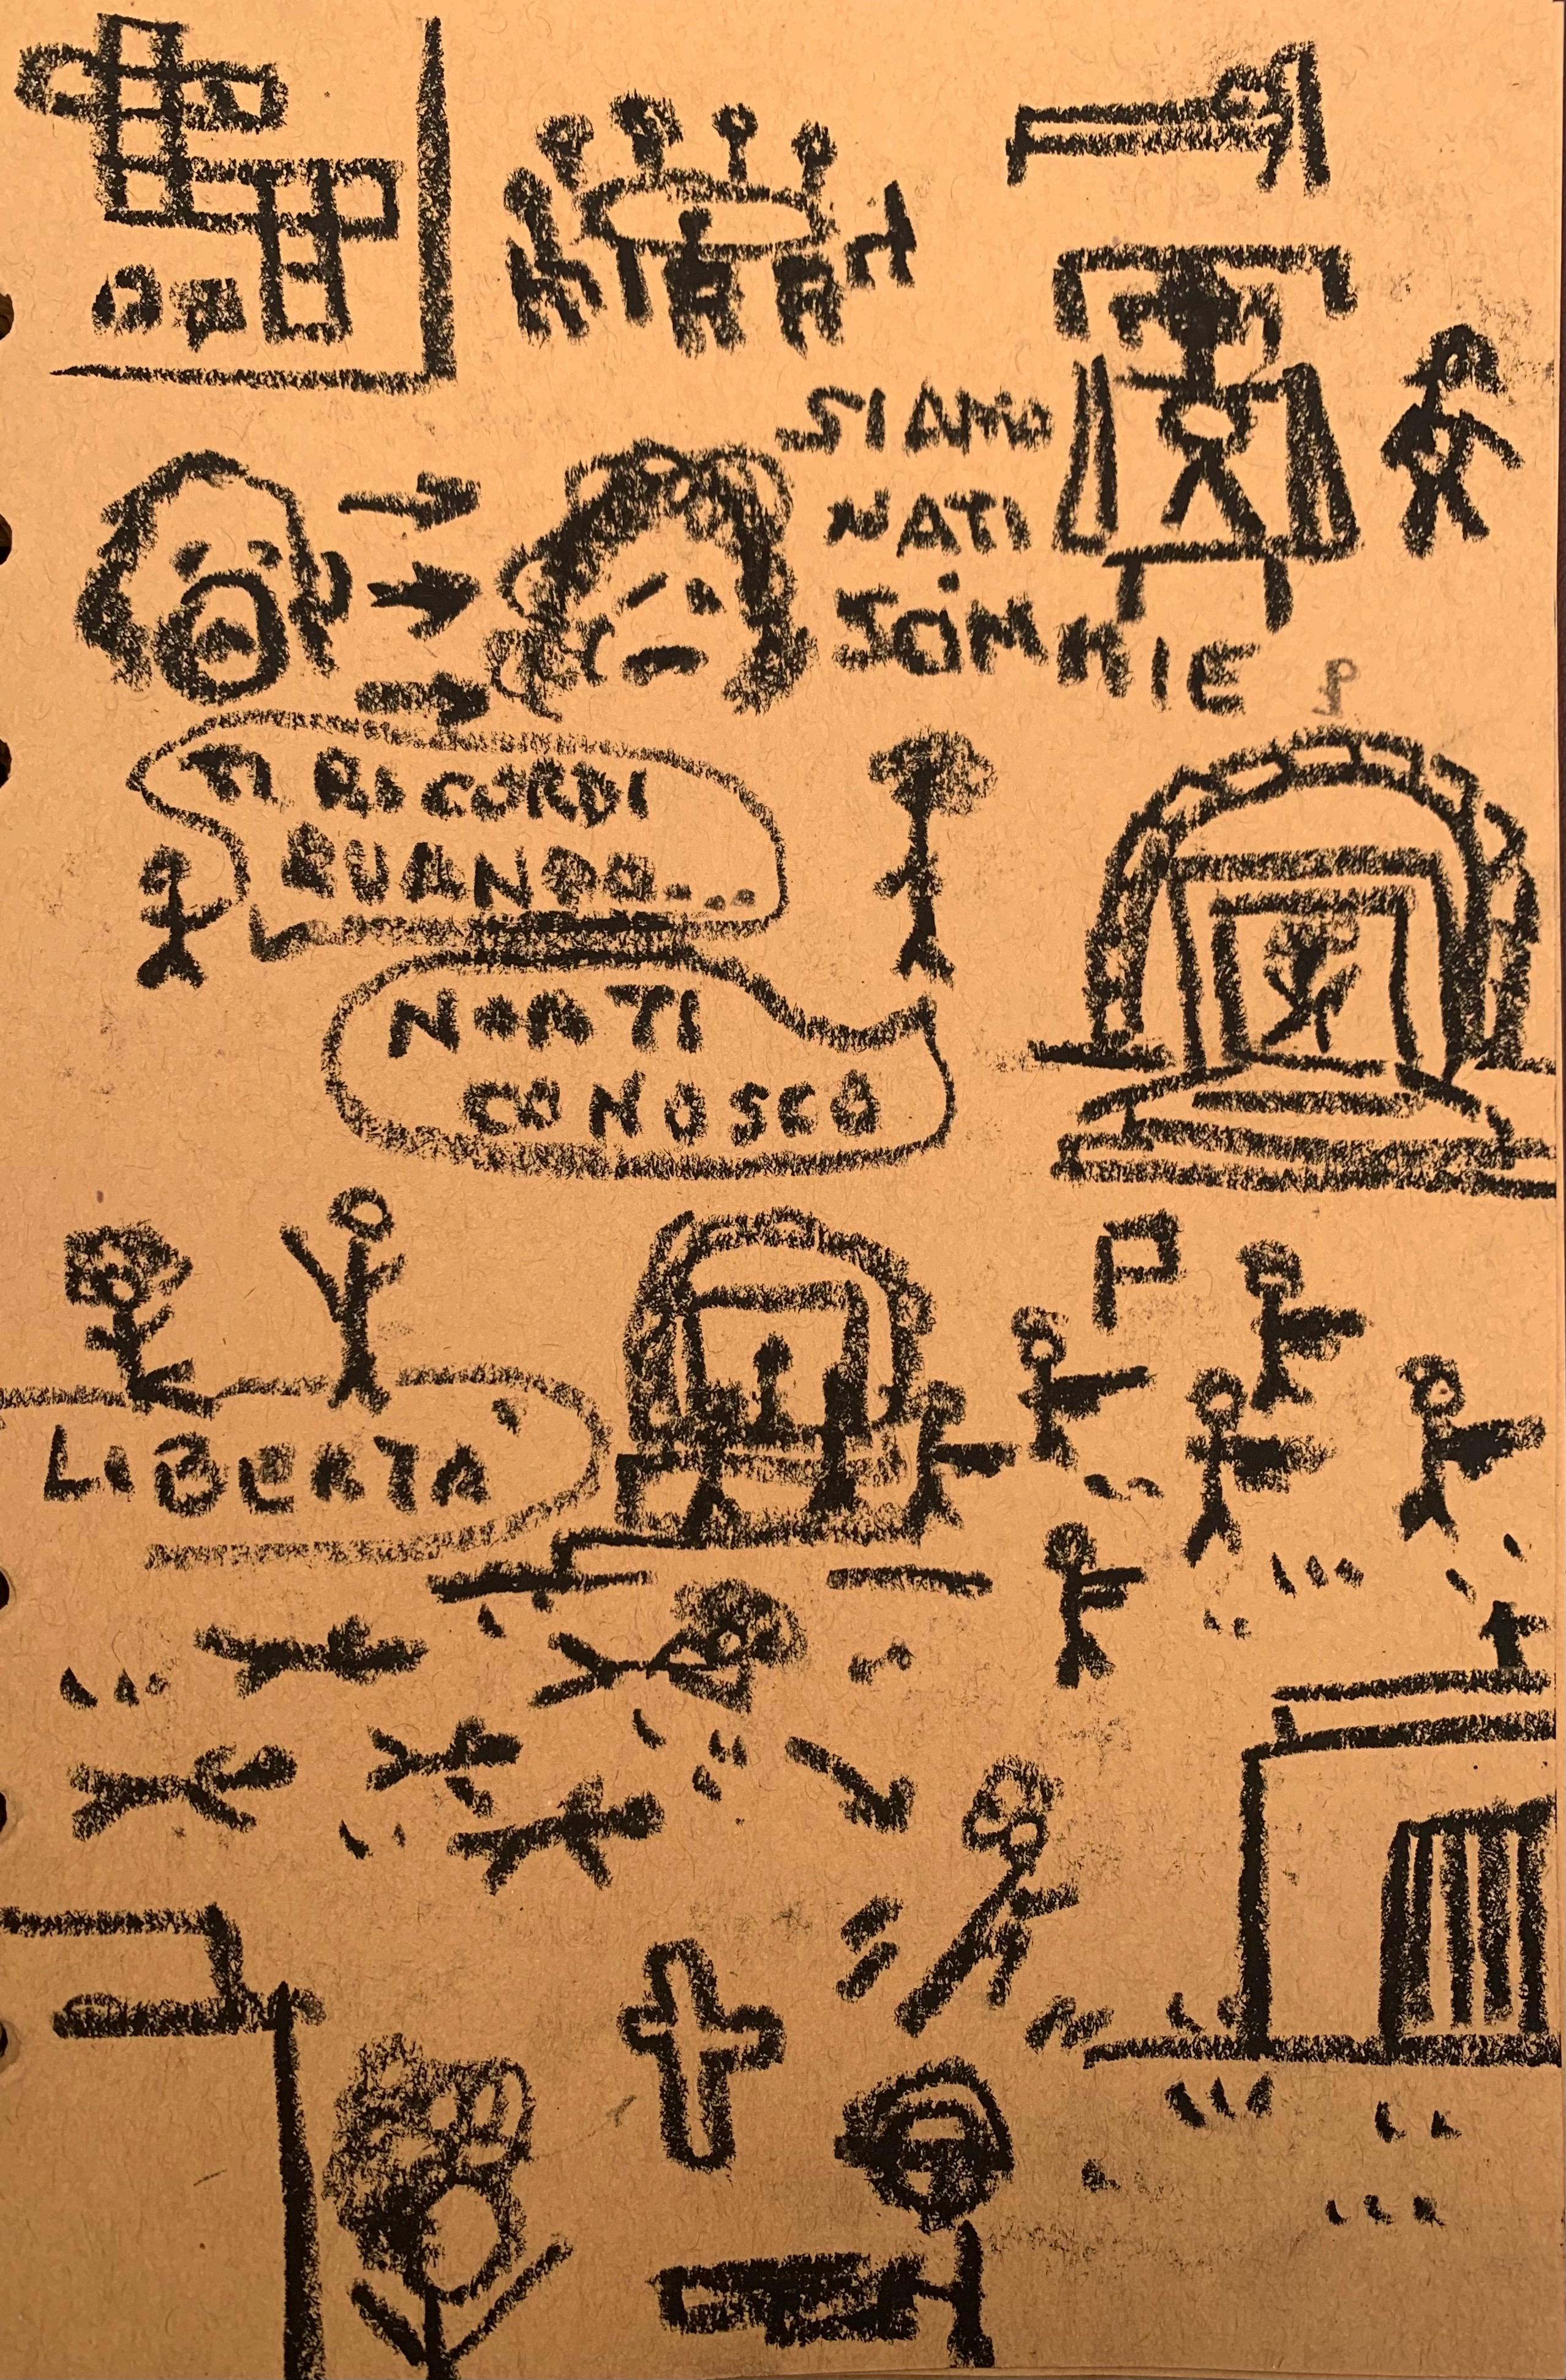 SIAMO
NATI
SCiMMIE
TI RICORDI
QUANDO...
NON TI
CONOSCO
LIBERTA'